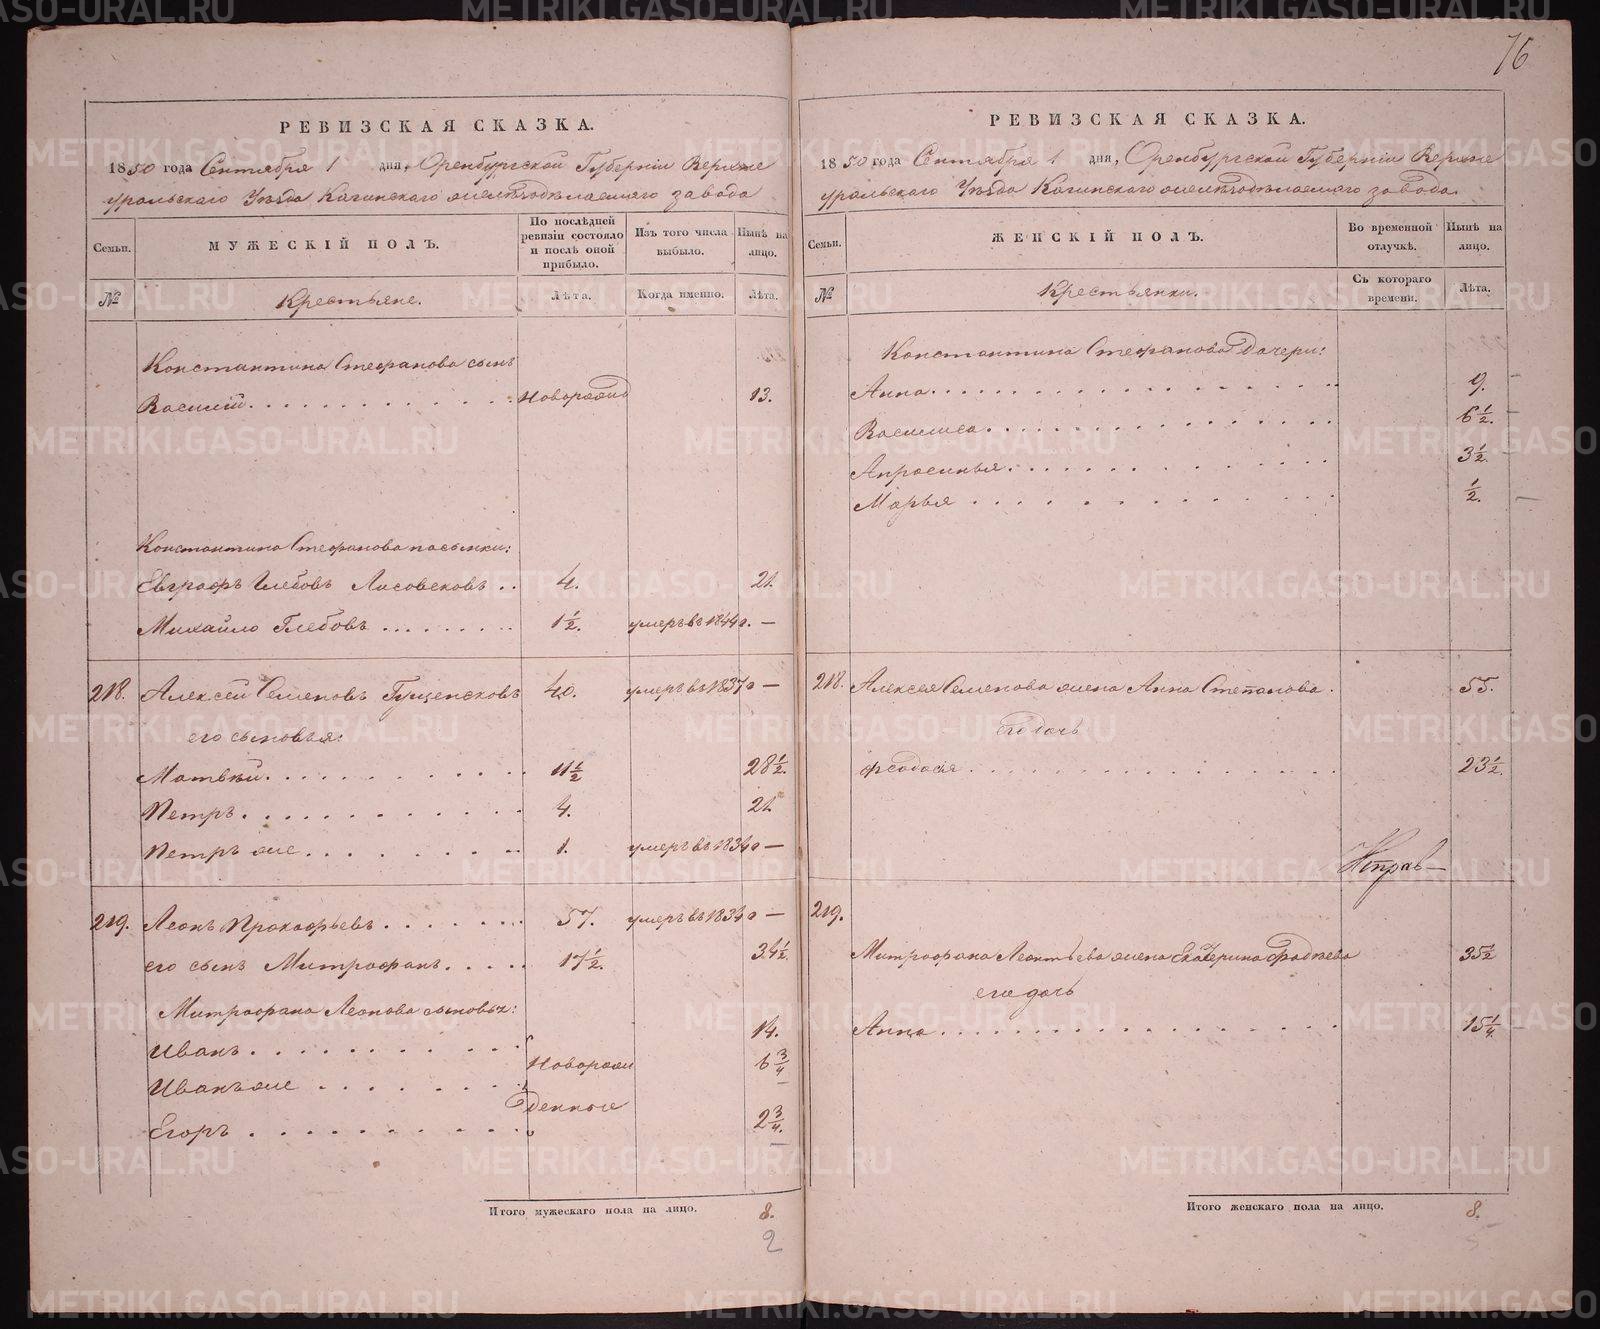 76
РЕВИЗСКАЯ СКАЗКА.
1850 года Сентября 1 дня, Оренбургской Губерніи Верхне
уральскаго Уѣзда Кагинскаго желѣзодѣлаемаго завода
Семьи. МУЖЕСКІЙ ПОЛЪ. По послѣдней ревизіи состояло и послѣ оной прибыло. Изъ того числа выбыло. Нынѣ на лицо.
№ Крестьяне. Лѣта. Когда именно. Лѣта.
Константина Стефанова сынъ
Василій. новорожд 13.
Константина Стефанова пасынки:
Евграфъ Глебовъ Лисовсковъ .. 4. 21.
Михайло Глебовъ 1½. умеръ въ 1844 г. —
218. Алексей Семеновъ 40. умеръ въ 1837 г —
его сыновья:
Матвѣй. 11½ 28½.
Петръ. 4. 21.
Петръ же. 1. умеръ въ 1834 г —
219. Леонъ Прокофьевъ 57. умеръ въ 1834 г —
его сынъ Митрофанъ. 17½. 34½.
Митрофана Леонова сыновья:
Иванъ. 14.
Иванъ же Новорож 6¾
Егоръ. денные 2¾.
Итого мужескаго пола на лицо. 8.
2
РЕВИЗСКАЯ СКАЗКА.
1850 года Сентября 1 дня, Оренбургской Губерніи Верхне
уральскаго Уѣзда Кагинскаго желѣзодѣлаемаго завода.
Семьи. ЖЕНСКІЙ ПОЛЪ. Во временной отлучкѣ. Нынѣ на лицо.
№ Крестьянки. Съ котораго времени. Лѣта.
Константина Стефанова дочери:
Анна. 9.
Василиса. 6½.
Апросинья. 3½.
Марья ½.
218. Алексея Семенова жена Анна Степанова. 55.
его дочь
Феодосія. 23½.
219.
Митрофана Леонтьева жена Екатерина Фадѣева 35½
его дочь
Анна. 15¼.
Итого женскаго пола на лицо. 8.
5
METRIKI.GASO-URAL.RU